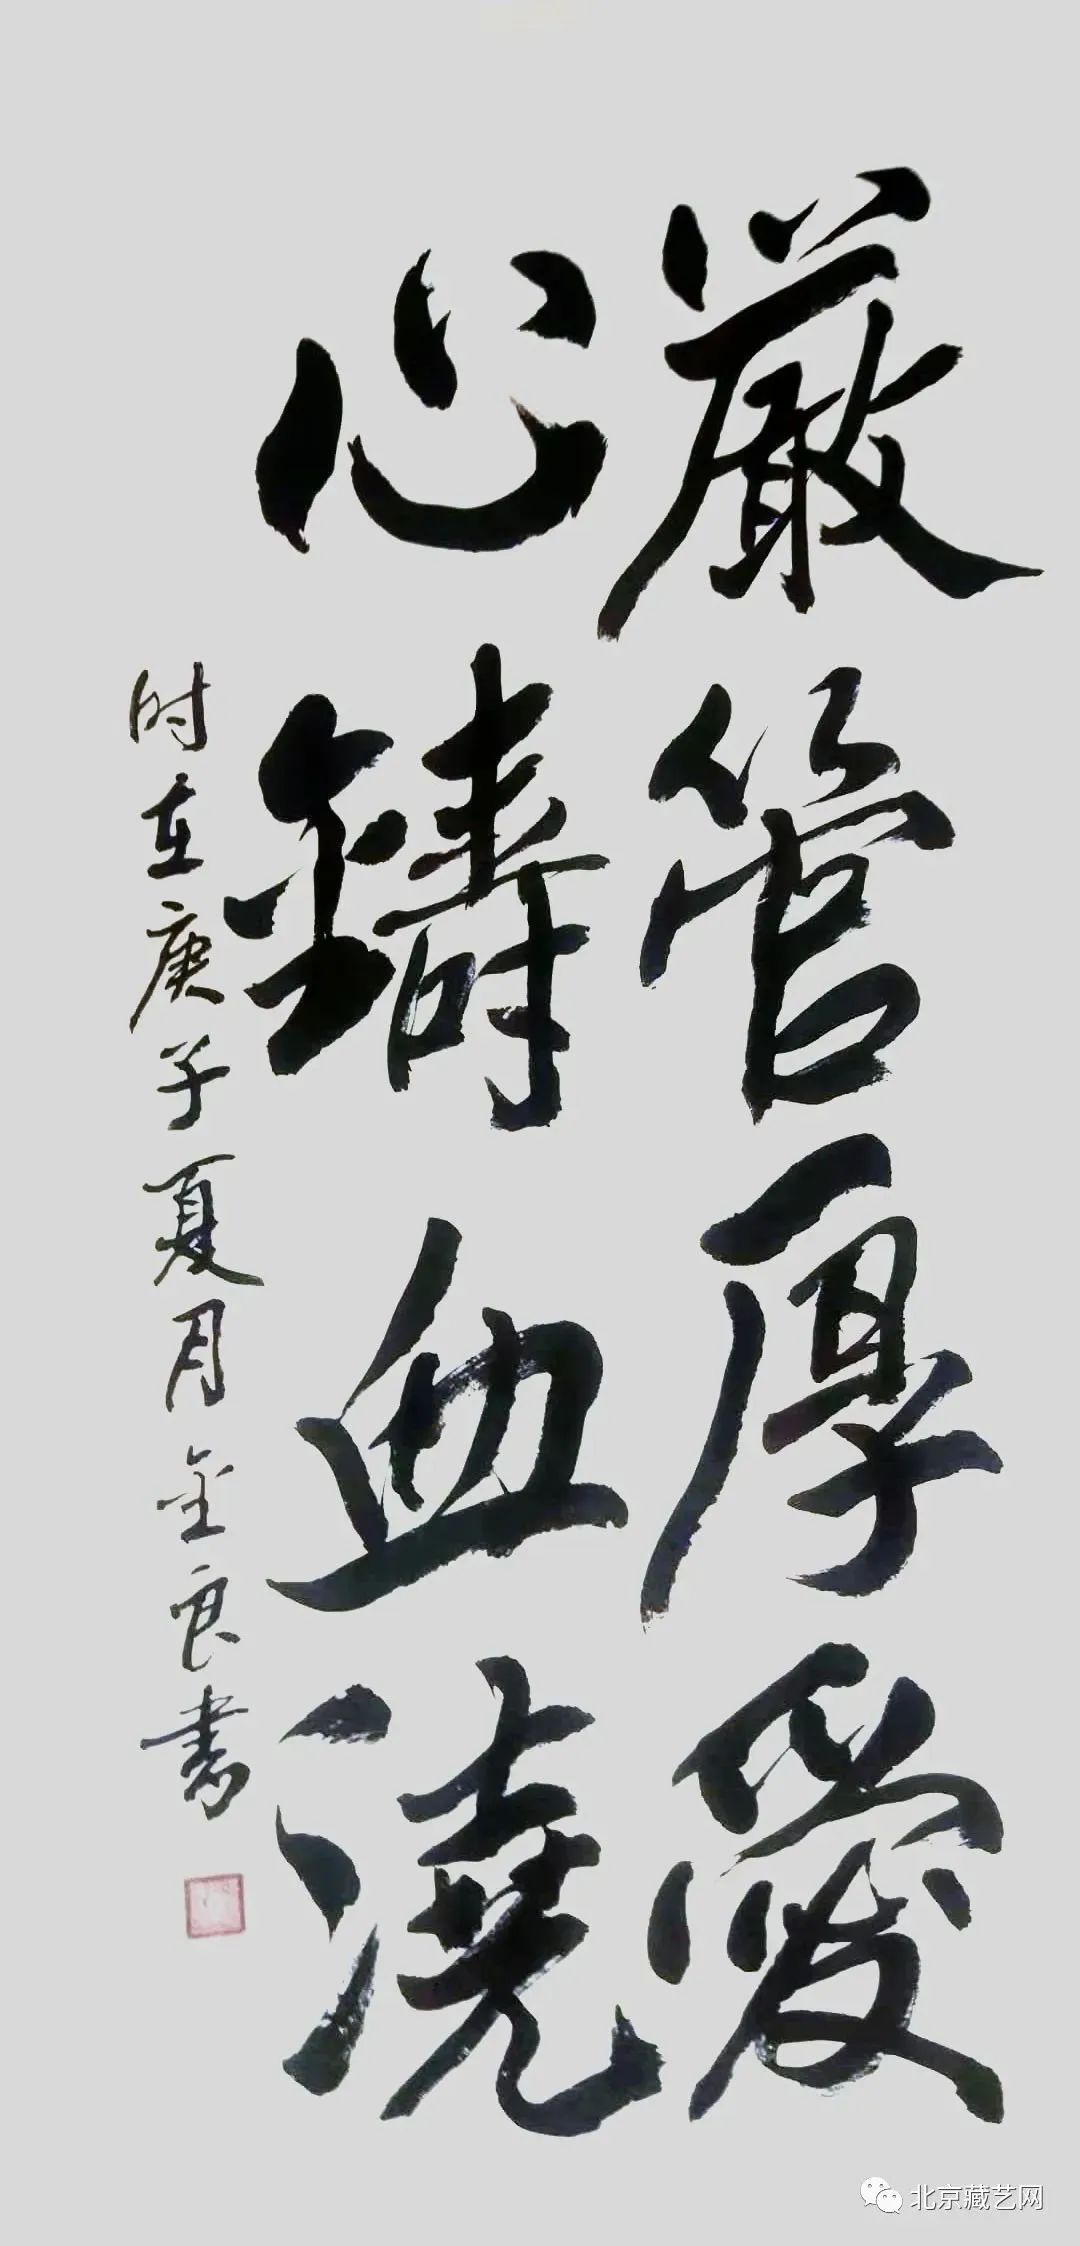 厳管厚愛
心鑄血澆
时在庚子夏月金良書
北京藏艺网